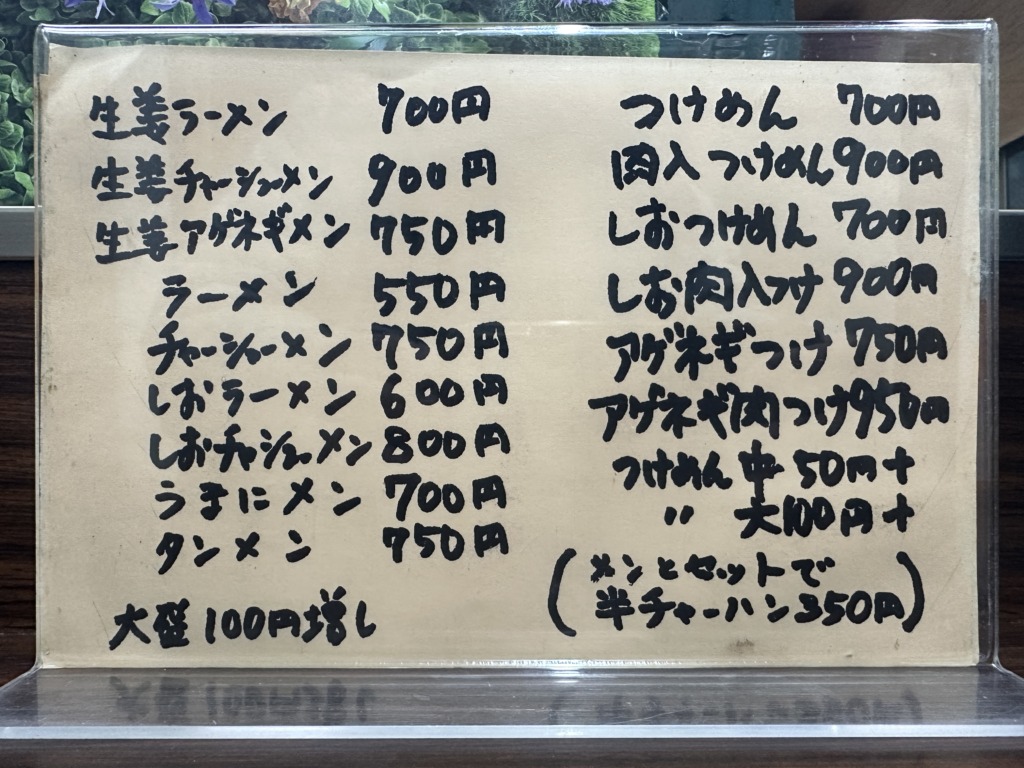 生姜ラーメン 700円
生姜チャーシューメン 900円
生姜アゲネギメン 750円
ラーメン 550円
チャーシューメン 750円
しおラーメン 600円
しおチャシューメン 800円
うまにメン 700円
タンメン 750円
大盛100円増し
つけめん 700円
肉入つけめん 900円
しおつけめん 700円
しお肉入つけ 900円
アゲネギつけ 750円
アゲネギ肉つけ 950円
つけめん 中 50円+
〃 大100円+
(メンとセットで
半チャーハン350円)